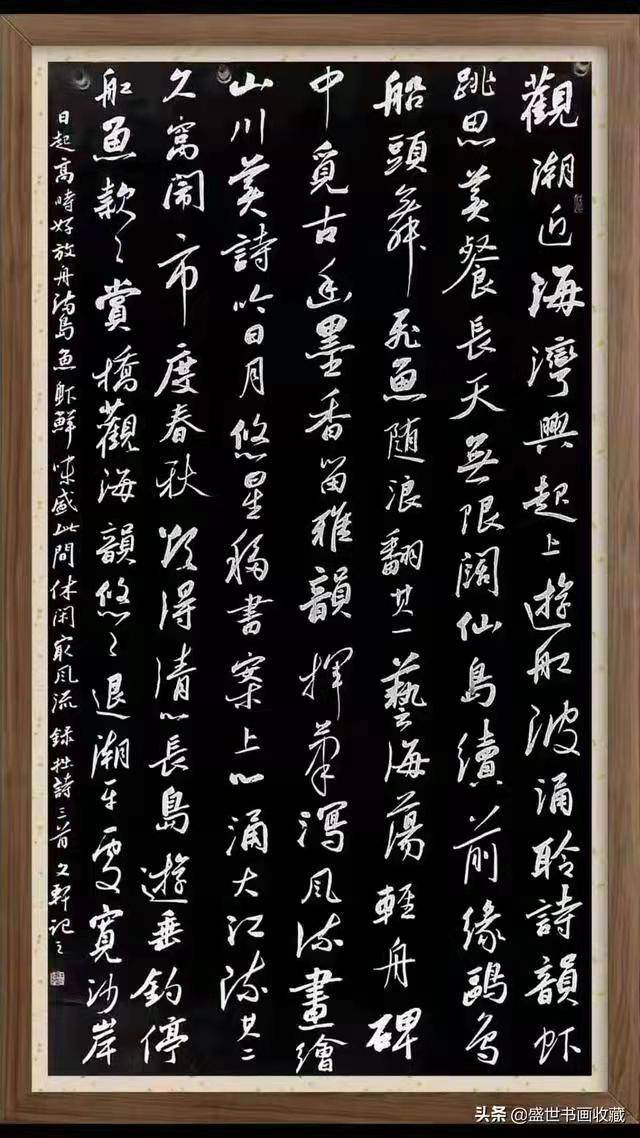 觀潮近海灣興起上遊船波涌聆詩韻虾
跳思美餐長天無限闊仙島續前緣鷗鳥
船頭舞飛魚随浪翻其一藝海蕩輕舟碑
中覓古幽墨香留雅韻揮筆瀉風流畫繪
山川美詩吟日月悠星移書案上心涌大江流其二
久窩鬧市度春秋難得清心長島遊垂釣停
船魚款〻賞橋觀海韻悠〻退潮平處寬沙岸
日起高時好放舟满島魚虾鮮味盛此間休闲最風流 録拙詩三首文軒記之
头条@盛世书画收藏